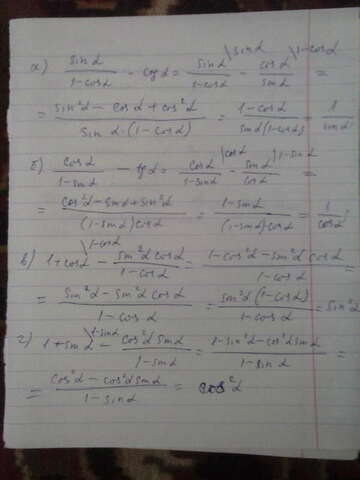 а) sinα/(1-cosα) - ctgα = sinα/(1-cosα) \sinα - cosα/sinα \1-cosα =
= (sin²α - cosα + cos²α)/(sinα·(1-cosα)) = (1-cosα)/(sinα(1-cosα)) = 1/sinα
б) cosα/(1-sinα) - tgα = cosα/(1-sinα) \cosα - sinα/cosα \1-sinα =
= (cos²α - sinα + sin²α)/((1-sinα)cosα) = (1-sinα)/((1-sinα)cosα) = 1/cosα
в) 1+cosα \1-cosα - (sin²α cosα)/(1-cosα) = (1-cos²α - sin²α cosα)/(1-cosα) =
= (sin²α - sin²α cosα)/(1-cosα) = (sin²α(1-cosα))/(1-cosα) = sin²α
г) 1+sinα \1-sinα - (cos²α sinα)/(1-sinα) = (1-sin²α - cos²α sinα)/(1-sinα) =
= (cos²α - cos²α sinα)/(1-sinα) = cos²α